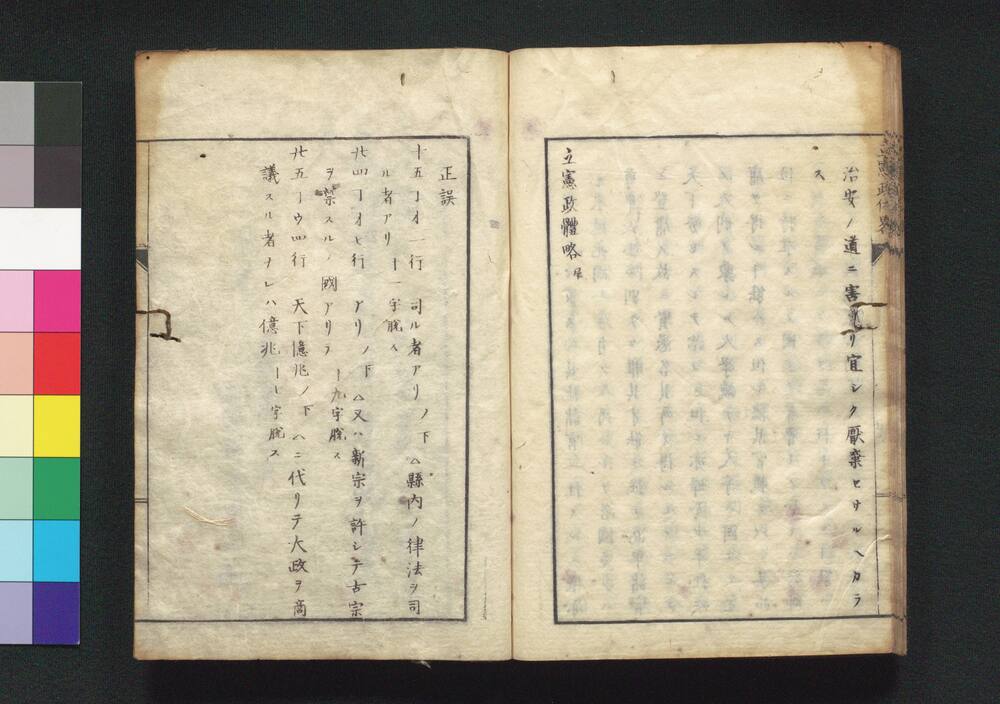 治安ノ道ニ害アリ宜シク厭棄セサルヘカラ
ス
立憲政體略 尾
正誤
十五丁オ一行 司ル者アリノ下 ム縣内ノ律法ヲ司
ル者アリ 十一字脱ス
廿四丁オ七行 アリノ下 ム又ハ新宗ヲ許シテ古宗
ヲ禁スルノ國アリテ 十九字脱ス
廿五丁ウ四行 天下億兆ノ下 ムニ代リテ大政ヲ商
議スル者ナレハ億兆 十七字脱ス
立憲政体略